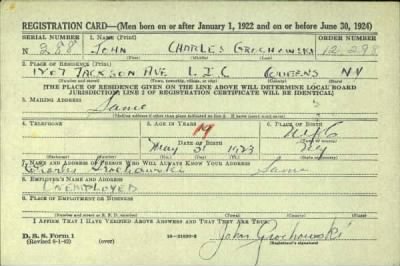 REGISTRATION CARD—(Men born on or after January 1, 1922 and on or before June 30, 1924)
SERIAL NUMBER 1. NAME (Print) ORDER NUMBER
N 288 JOHN CHARLES GROCHOWSKI 12,298
(First) (Middle) (Last)
2. PLACE OF RESIDENCE (Print)
JACKSON AVE L.I.C QUEENS N.Y
(Number and street) (Town, township, village, or city) (County) (State)
[THE PLACE OF RESIDENCE GIVEN ON THE LINE ABOVE WILL DETERMINE LOCAL BOARD
JURISDICTION; LINE 2 OF REGISTRATION CERTIFICATE WILL BE IDENTICAL]
3. MAILING ADDRESS
Same
[Mailing address if other than place indicated on line 2. If same, insert word same]
4. TELEPHONE 5. AGE IN YEARS 6. PLACE OF BIRTH
19 N.Y.C
DATE OF BIRTH (Town or county)
May 31 1923 N.Y
(Exchange) (Number) (Mo.) (Day) (Yr.) (State or country)
7. NAME AND ADDRESS OF PERSON WHO WILL ALWAYS KNOW YOUR ADDRESS
Charles Grochowski Same
8. EMPLOYER'S NAME AND ADDRESS
UNEMPLOYED
9. PLACE OF EMPLOYMENT OR BUSINESS
(Number and street or R. F. D. number) (Town) (County) (State)
I AFFIRM THAT I HAVE VERIFIED ABOVE ANSWERS AND THAT THEY ARE TRUE.
D. S. S. Form 1
(Revised 6-1-42) (over) 16—21630-2 John Grochowski
(Registrant's signature)